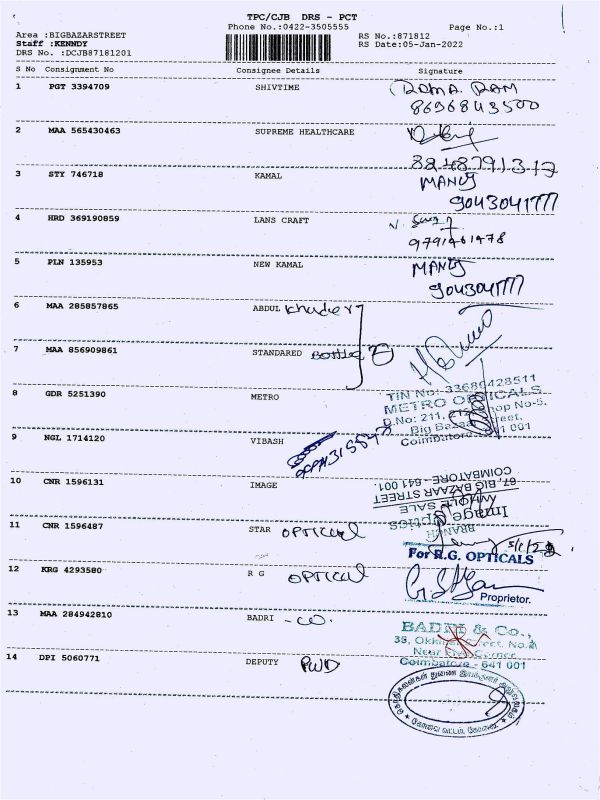 TPC/CJB DRS - PCT
Phone No.:0422-3505555 Page No.:1
Area :BIGBAZARSTREET RS No.:871812
Staff :KENNDY RS Date:05-Jan-2022
DRS No. :DCJB87181201
S No Consignment No Consignee Details Signature
1 PGT 3394709 SHIVTIME RAM
2 MAA 565430463 SUPREME HEALTHCARE
3 STY 746718 KAMAL MANOJ
9043041777
4 HRD 369190859 LANS CRAFT
5 PLN 135953 NEW KAMAL MANOJ
9043041777
6 MAA 285857865 ABDUL Khader
7 MAA 856909861 STANDARED
8 GDR 5251390 METRO
TIN No: 33680428511
METRO OPTICALS
D.No: 211, Shop No-5,
Big Bazaar Street,
Coimbatore 641 001
9 NGL 1714120 VIBASH
10 CNR 1596131 IMAGE
67, BIG BAZAAR STREET
COIMBATORE - 641 001.
WHOLE SALE
Image Optics
BRANCH
11 CNR 1596487 STAR OPTICAL
For R.G. OPTICALS
12 KRG 4293580 R G OPTICAL
Proprietor.
13 MAA 284942810 BADRI - co.
BADRI & Co.,
Coimbatore - 641 001
14 DPI 5060771 DEPUTY PWD
கோவை வட்டம், கோவை